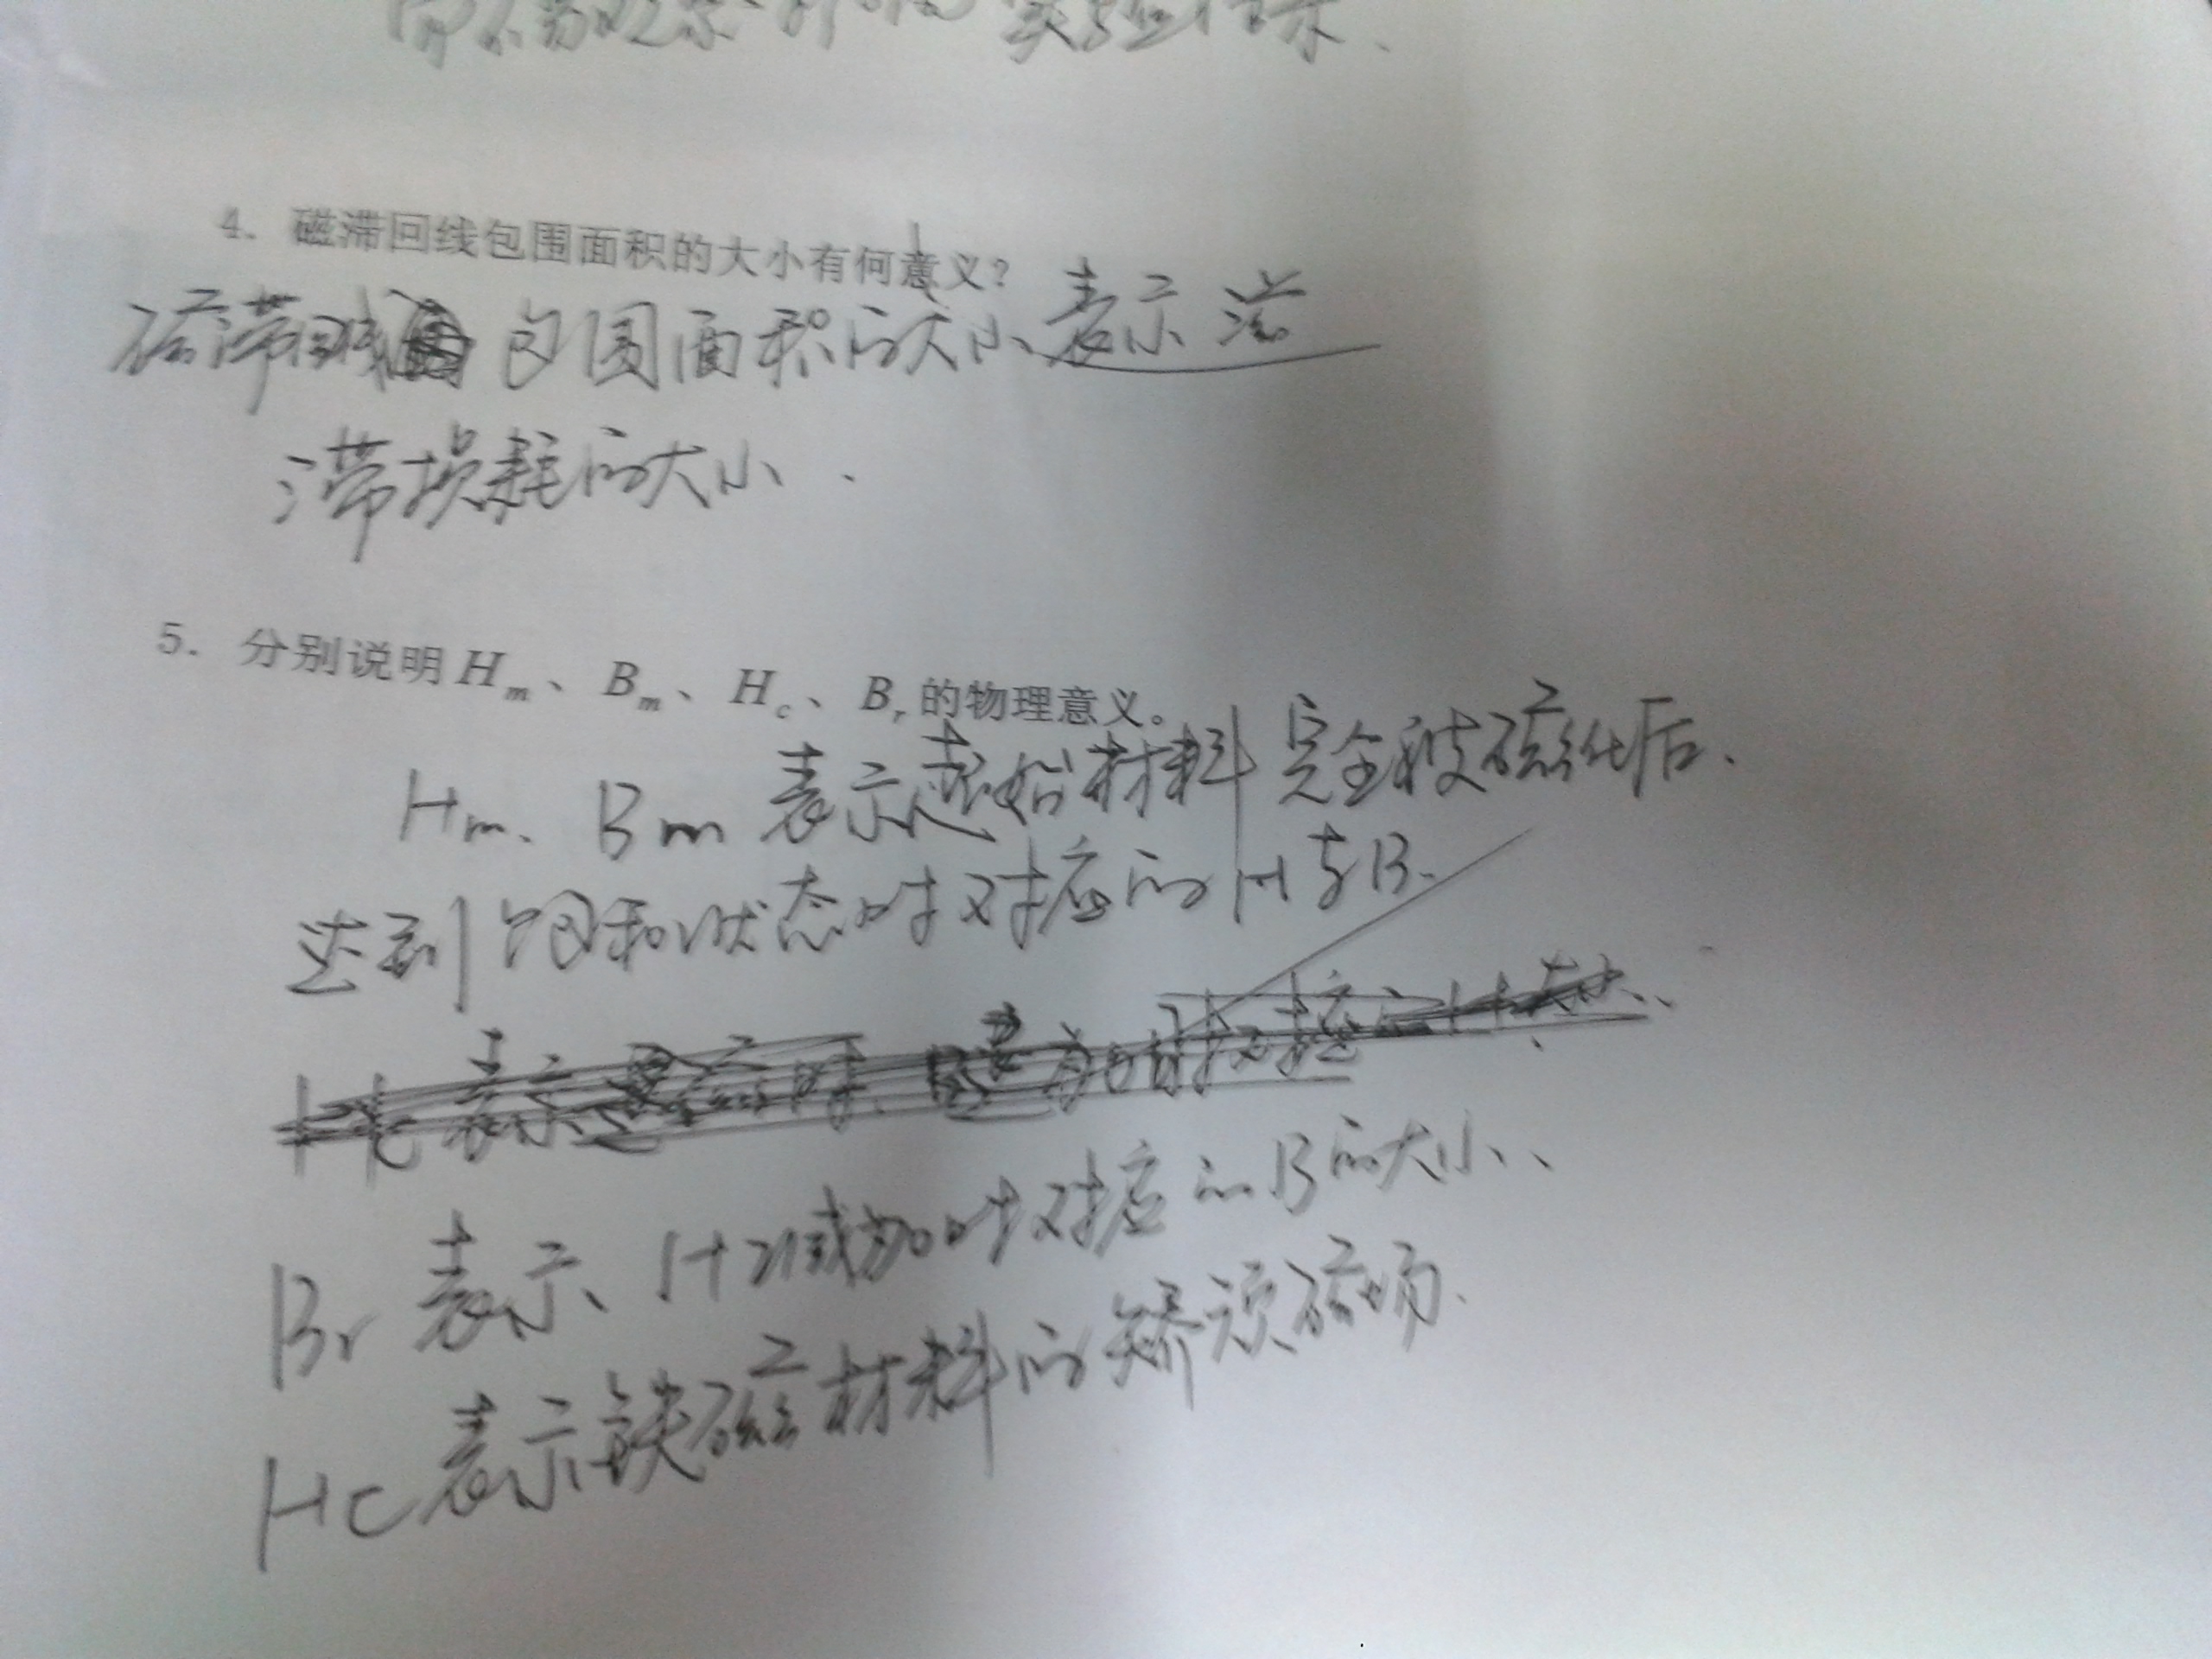 实验结果.
4. 磁滞回线包围面积的大小有何意义?
磁滞回线 包围面积的大小表示磁
滞损耗的大小.
5. 分别说明 Hm、Bm、Hc、Br 的物理意义。
Hm. Bm 表示起始材料完全被磁化后.
达到饱和状态时对应的H与B.
Br 表示、H减为0时对应的B的大小、
Hc 表示铁磁材料的矫顽磁场.